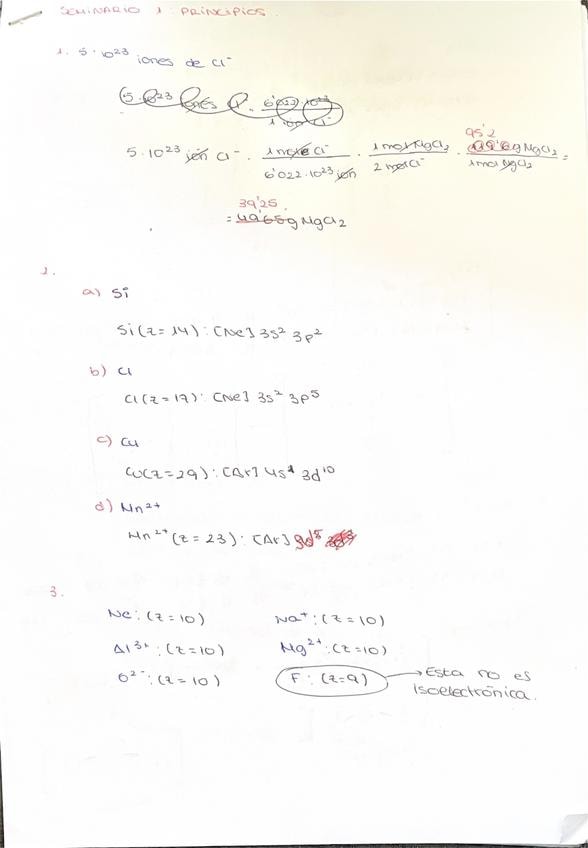 SEMINARIO 1: PRINCIPIOS.
1. 5·10²³ iones de Cl⁻
5·10²³ ión Cl⁻ · 1 mol Cl⁻ / 6'022·10²³ ión · 1 mol MgCl₂ / 2 mol Cl⁻ · 95'2 g MgCl₂ / 1 mol MgCl₂ =
39'25
= g MgCl₂
2.
a) Si
Si (z=14): [Ne] 3s² 3p²
b) Cl
Cl (z=17): [Ne] 3s² 3p⁵
c) Cu
Cu (z=29): [Ar] 4s¹ 3d¹⁰
d) Mn²⁺
Mn²⁺ (z=23): [Ar] 3d⁵
3.
Ne: (z=10) Na⁺: (z=10)
Al³⁺: (z=10) Mg²⁺: (z=10)
O²⁻: (z=10) F: (z=9) → Esta no es
isoelectrónica.